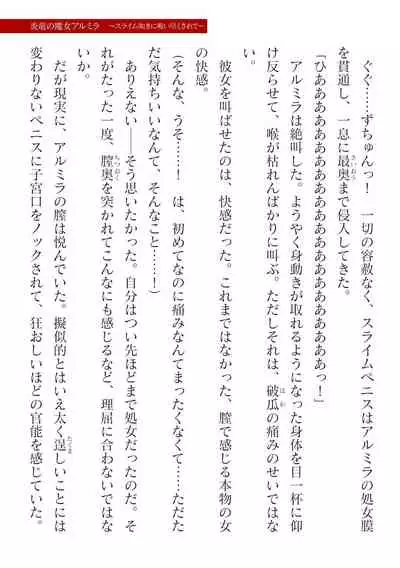 炎竜の魔女アルミラ
　ぐぐ……ずちゅんっ！　一切の容赦なく、スライムペニスはアルミラの処女膜
を貫通し、一息に最奥まで侵入してきた。
「ひあああああああああああああああああああああっ！」
　アルミラは絶叫した。ようやく身動きが取れるようになった身体を目一杯に仰
け反らせて、喉が枯れんばかりに叫ぶ。ただしそれは、破瓜の痛みのせいではな
い。
　彼女を叫ばせたのは、快感だった。これまではなかった、膣で感じる本物の女
の快感。
（そんな、うそ……！　は、初めてなのに痛みなんてまったくなくて……ただた
だ気持ちいいなんて、そんなこと……！）
　ありえない――そう思いたかった。自分はつい先ほどまで処女だったのだ。そ
れがたった一度、膣奥を突かれてこんなにも感じるなど、理屈に合わないではな
いか。
　だが現実に、アルミラの膣は悦んでいた。擬似的とはいえ太く逞しいことには
変わりないペニスに子宮口をノックされて、狂おしいほどの官能を感じていた。